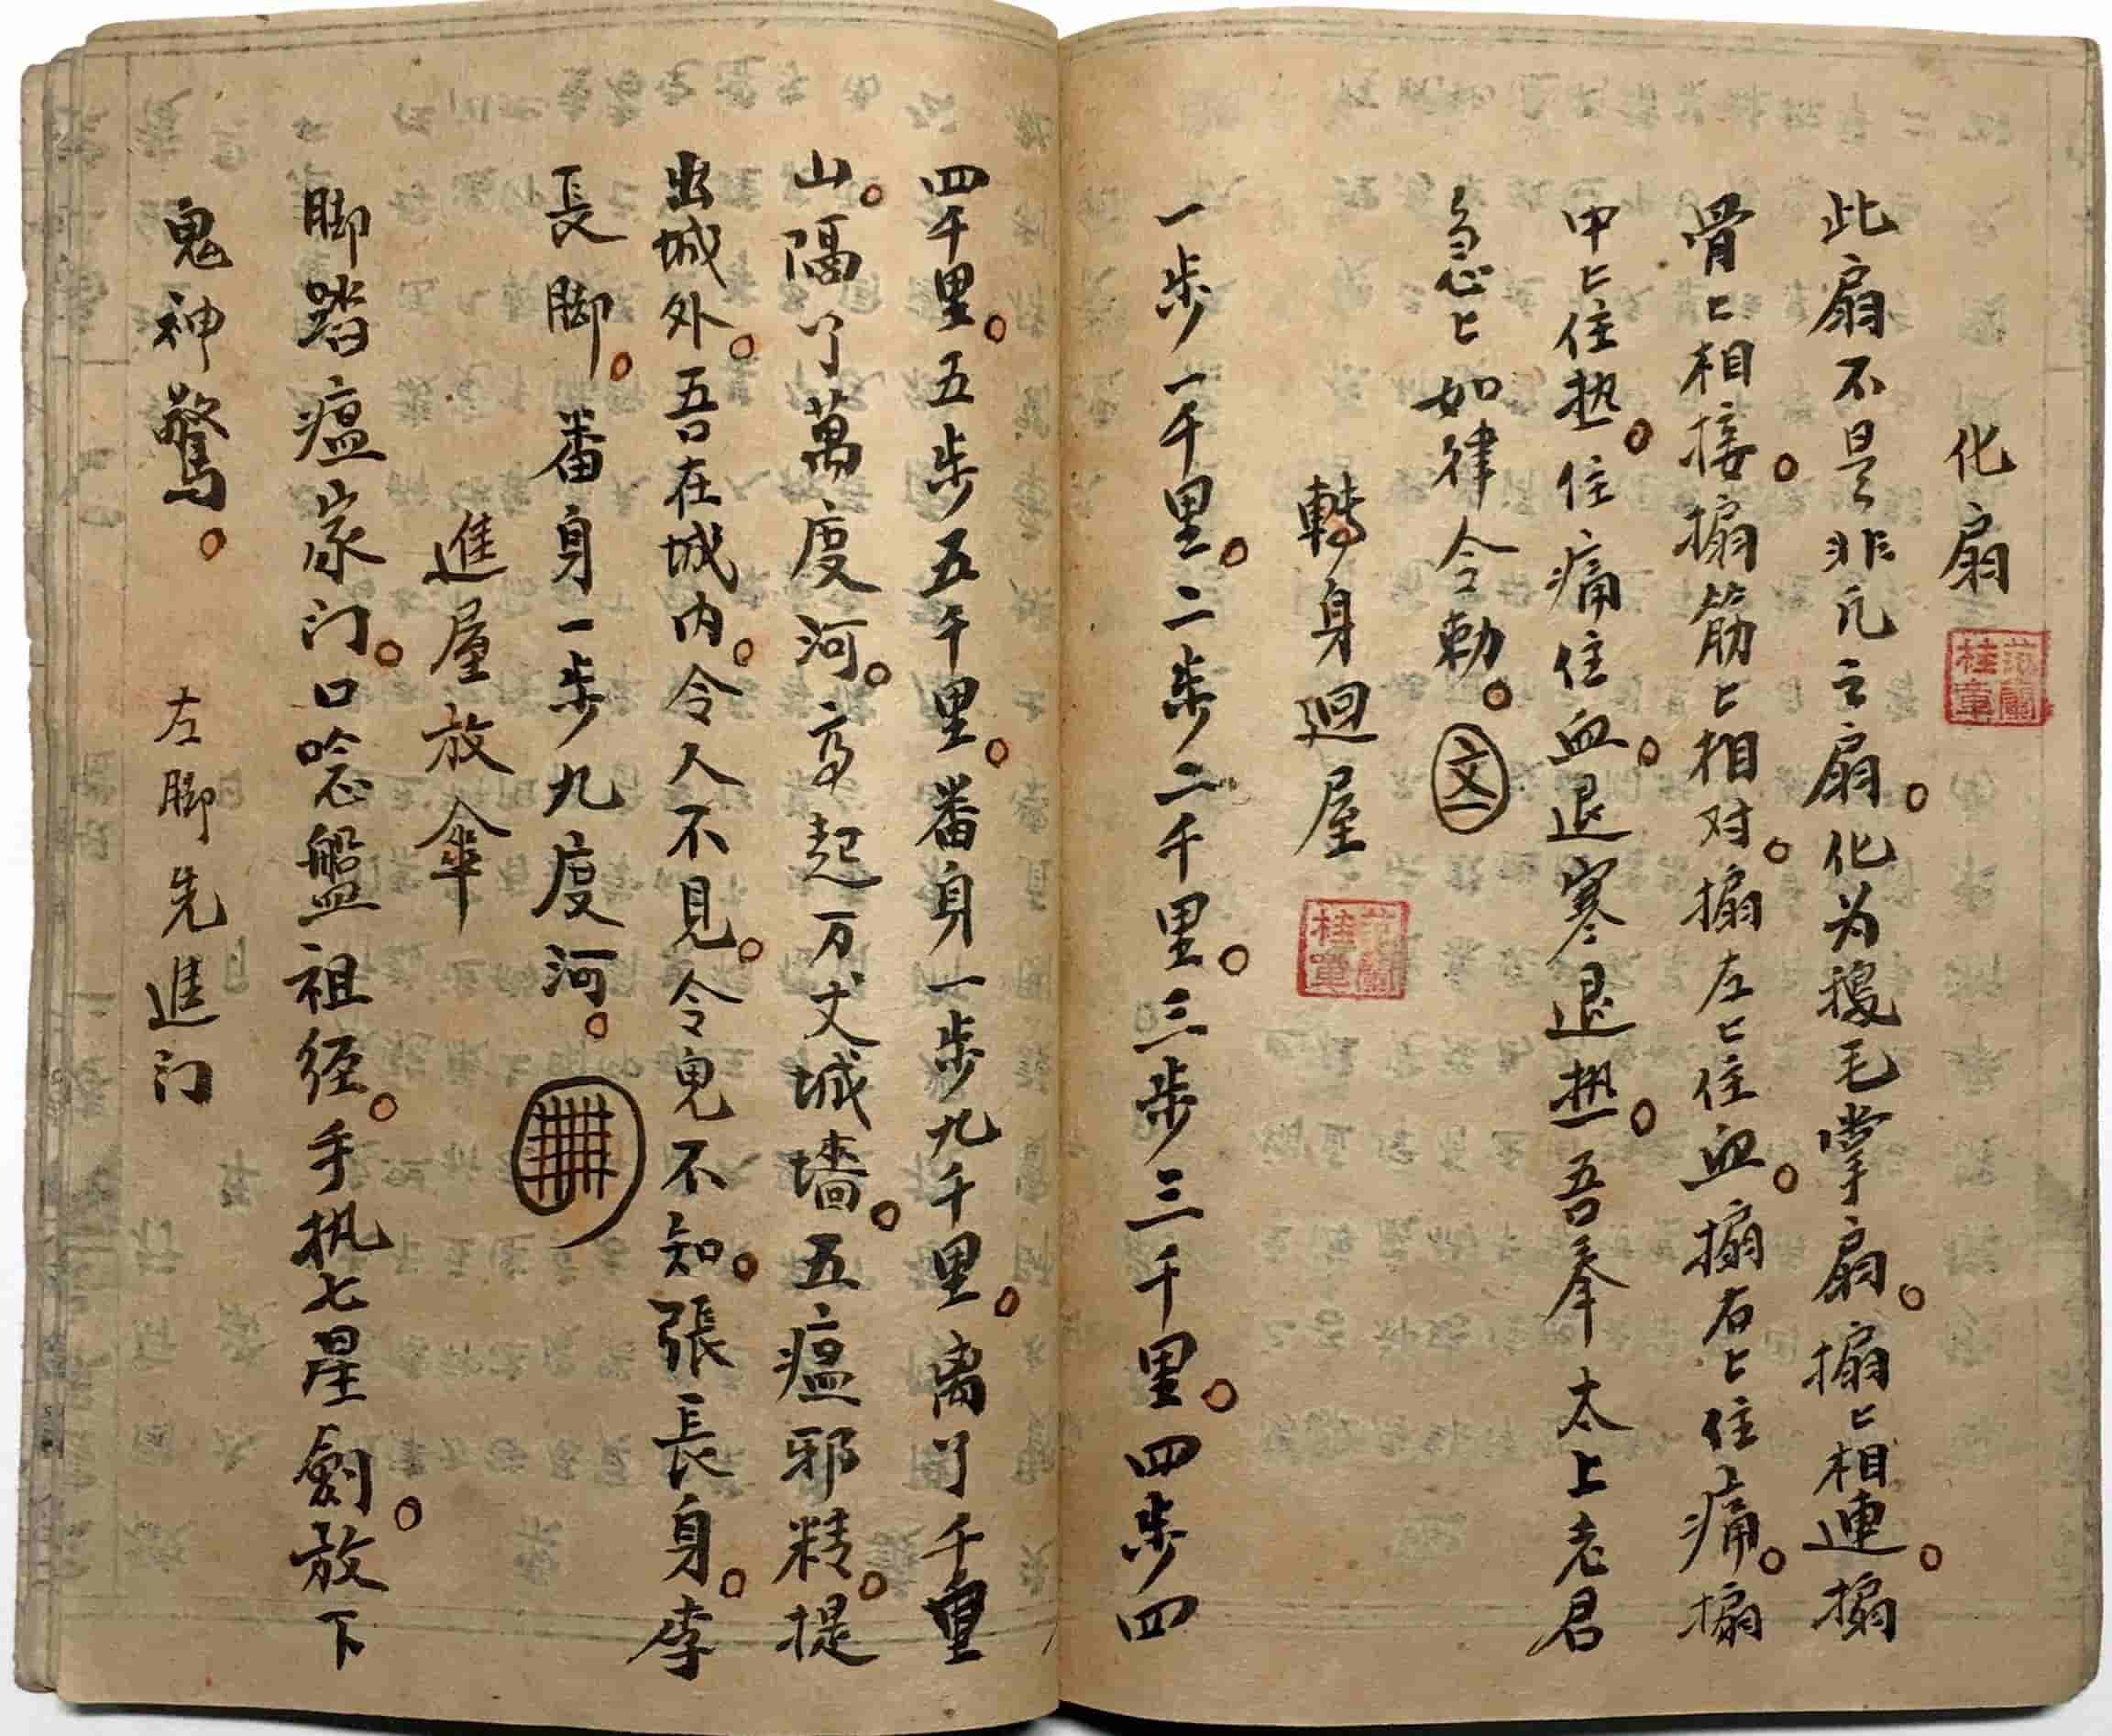 化扇
此扇不是非凡之扇。化为鵝毛掌扇。搧〻相連。搧
骨〻相接。搧筋〻相对。搧左〻住血。搧右〻住痛。搧
中〻住热。住痛住血。退寒退热。吾奉太上老君
急〻如律令勅。
轉身迴屋
一步一千里。二步二千里。三步三千里。四步四
四千里。五步五千里。番身一步九千里。离了千重
山。隔了萬度河。立起万丈城墙。五瘟邪精。提
出城外。吾在城内。令人不見。令鬼不知。張長身。李
長脚。番身一步九度河。
進屋放傘
脚踏瘟家门。口唸盤祖经。手执七星劍。放下
鬼神驚。 左脚先進门